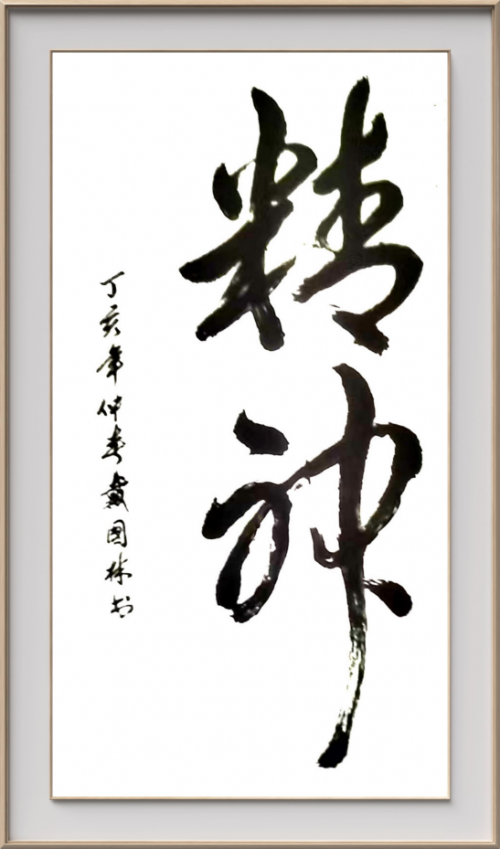 精神
丁亥年仲春戴国林书